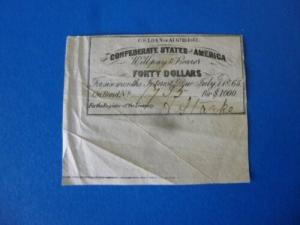 C.S. LOAN
CONFEDERATE STATES OF AMERICA
Will pay to Bearer
FORTY DOLLARS
For six months Interest due July 1 1865
On Bond No. 135 for $1000.
For the Register of the Treasury